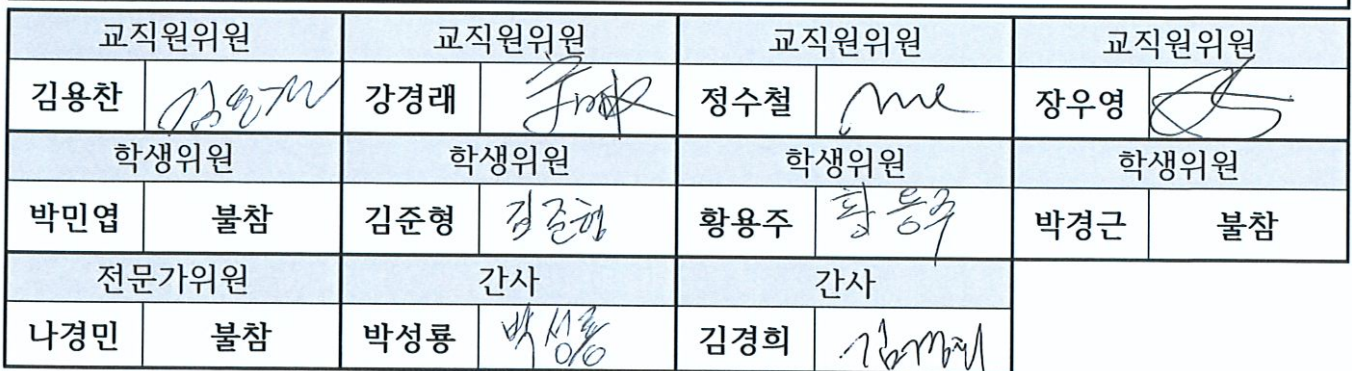 교직원위원 교직원위원 교직원위원 교직원위원
김용찬 강경래 정수철 장우영
학생위원 학생위원 학생위원 학생위원
박민엽 불참 김준형 김준형 황용주 황용주 박경근 불참
전문가위원 간사 간사
나경민 불참 박성룡 박성룡 김경희 김경희